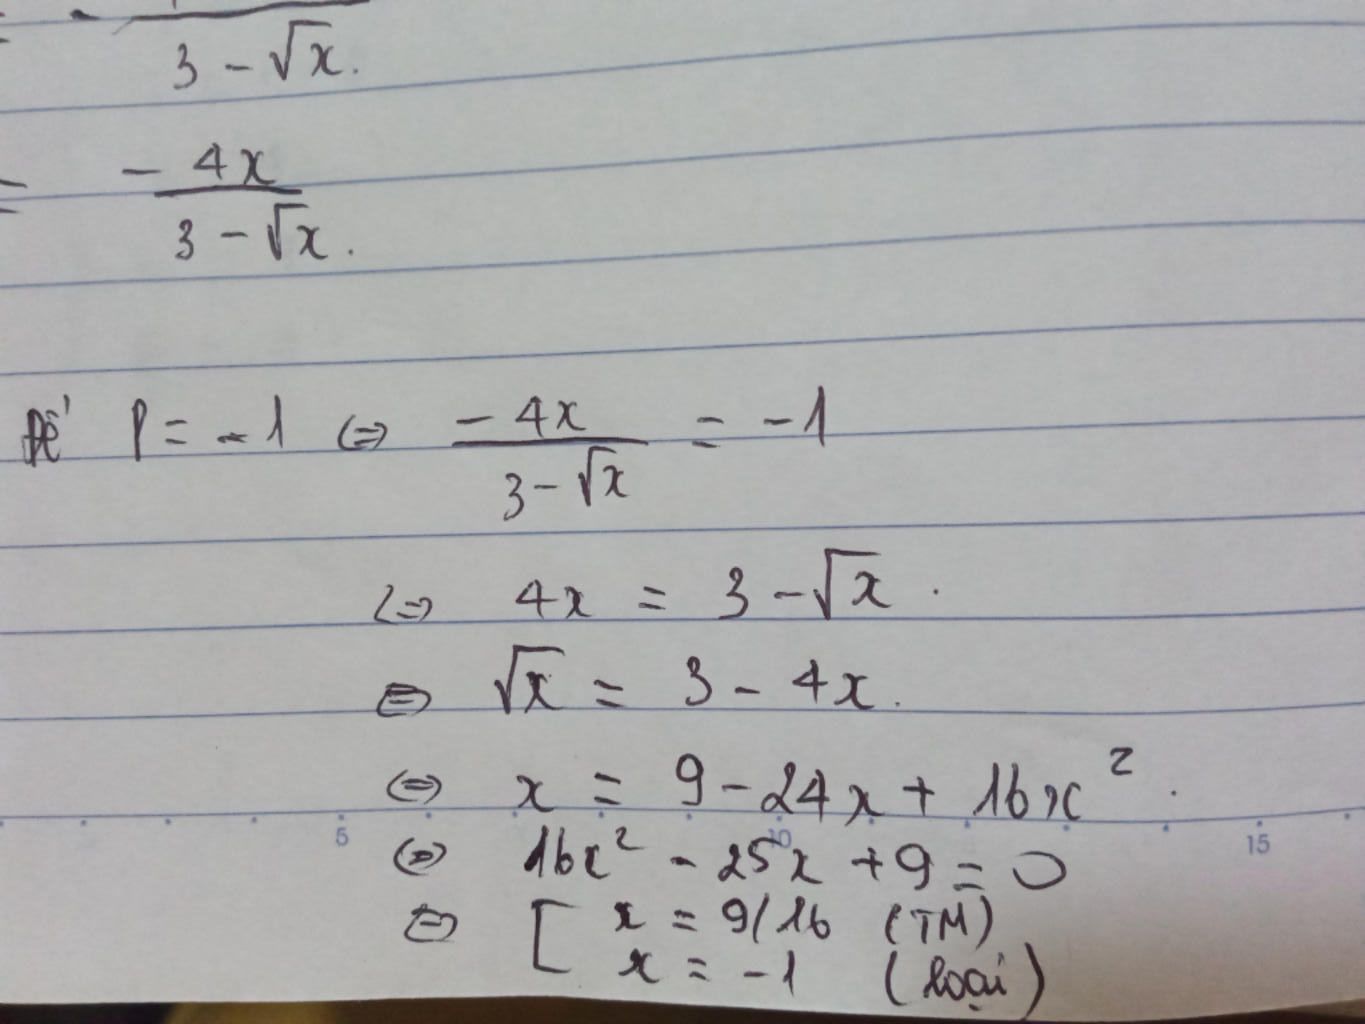 3 - √x.
= - 4x / 3 - √x.
Để P = -1 ⇔ - 4x / 3 - √x = -1
⇔ 4x = 3 - √x.
⇔ √x = 3 - 4x.
⇔ x = 9 - 24x + 16x².
5 10 15
⇔ 16x² - 25x + 9 = 0
⇔ [ x = 9/16 (TM)
x = -1 (loại)